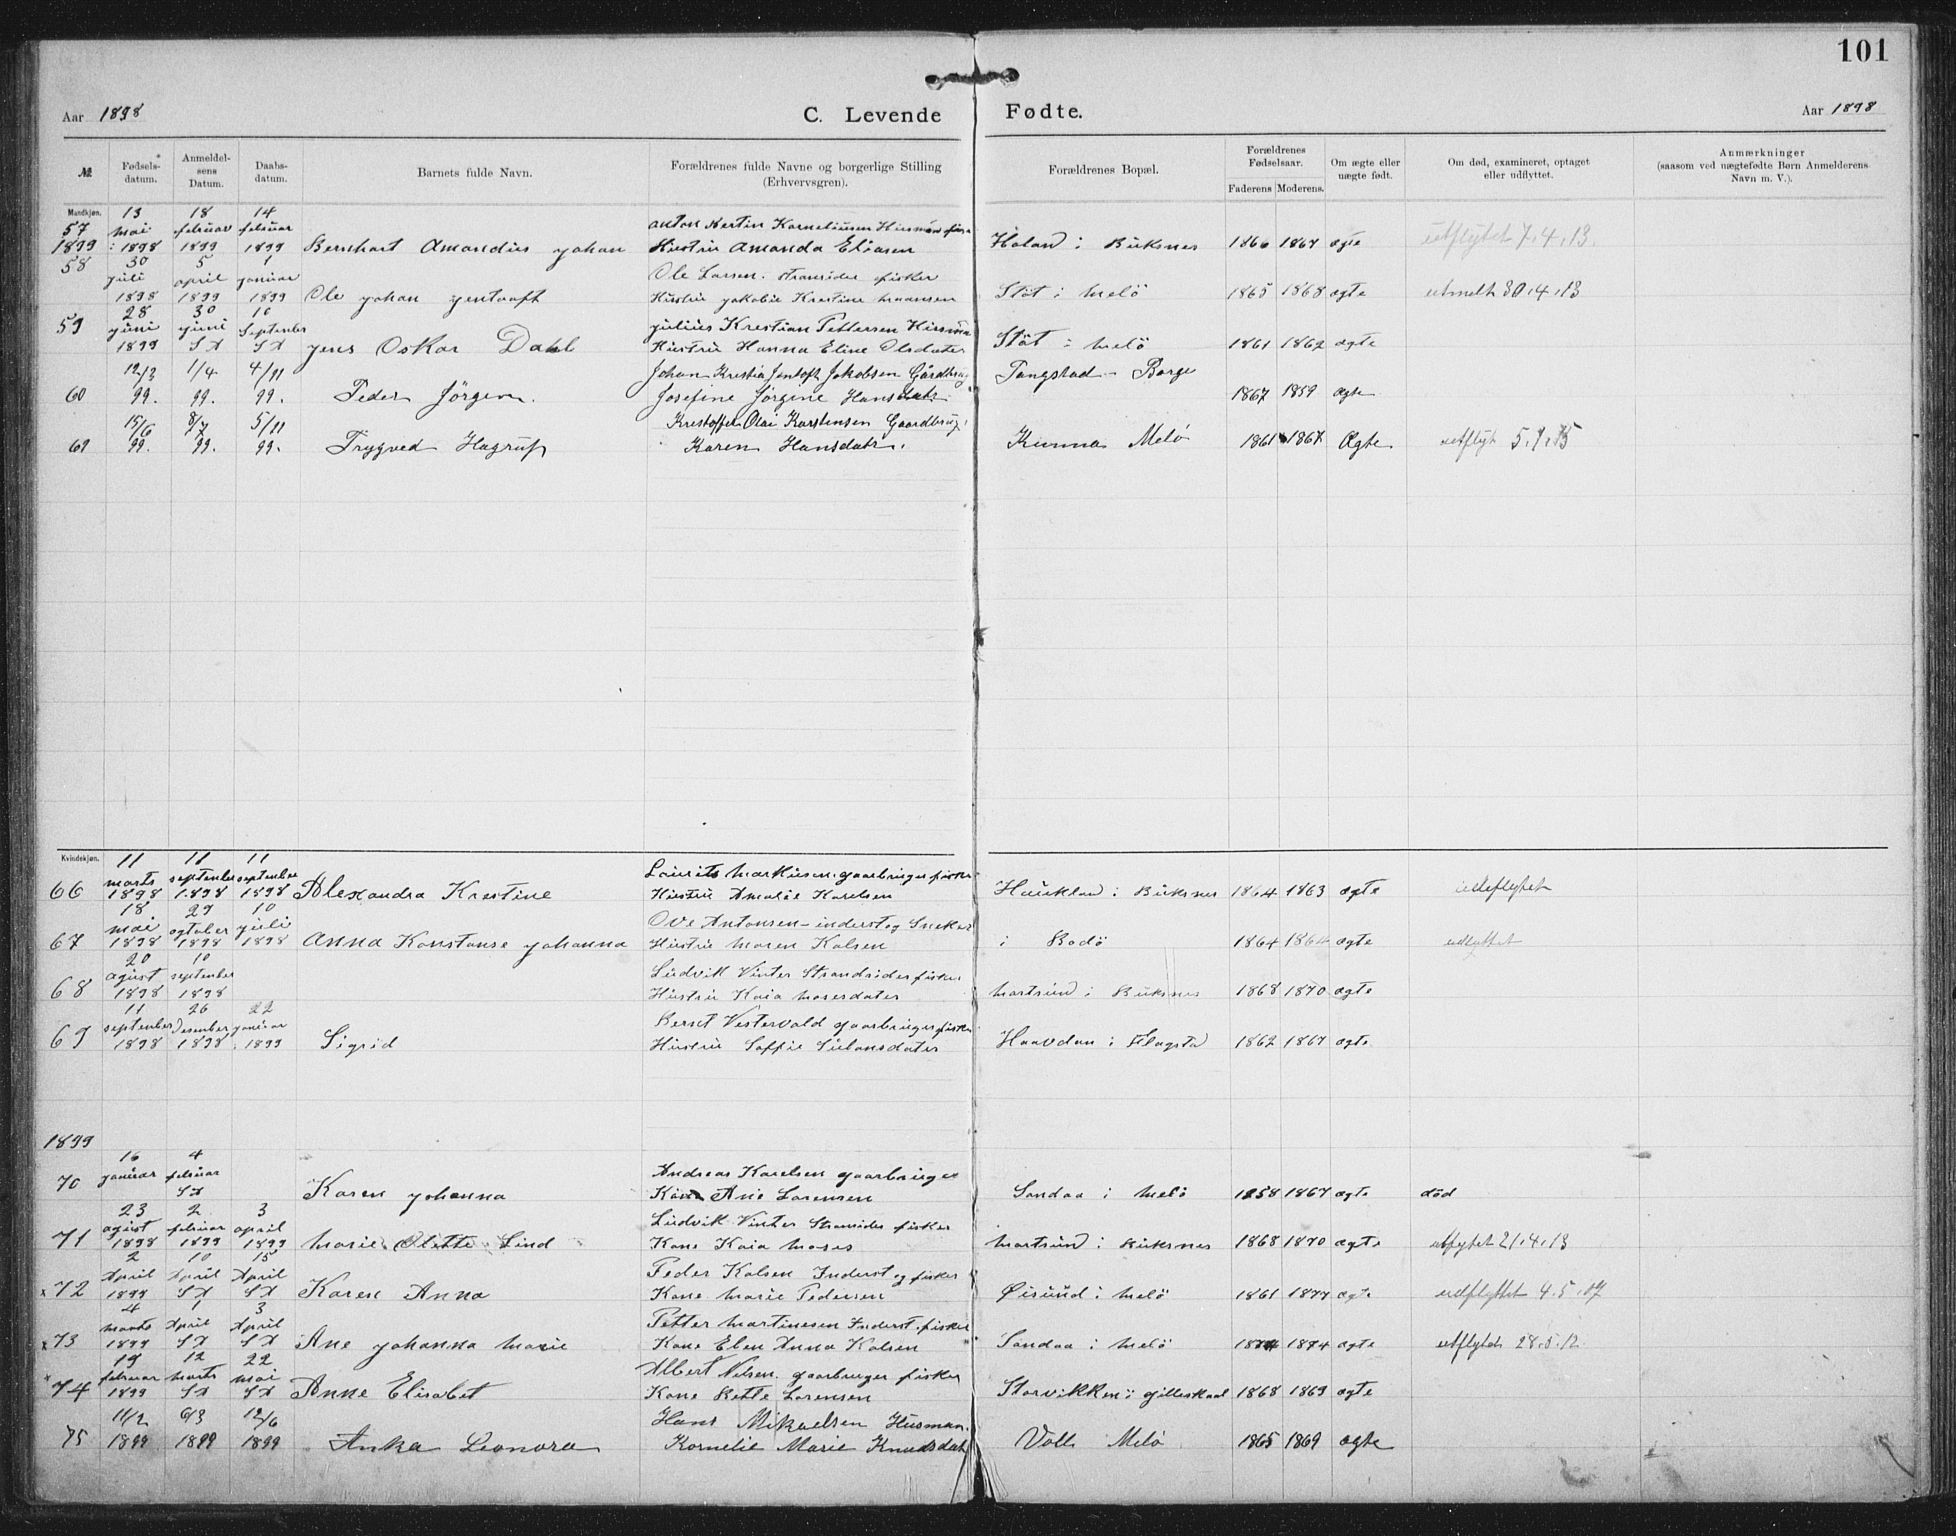 101
Aar 1898 C. Levende Fødte. Aar 1898
№ Fødsels-datum. Anmeldel-sens Datum. Daabs-datum. Barnets fulde Navn. Forældrenes fulde Navne og borgerlige Stilling (Erhvervsgren). Forældrenes Bopæl. Forældrenes Fødselsaar. Faderens Moderens. Om ægte eller uægte født. Om død, examineret, optaget eller udflyttet. Anmærkninger (saasom ved uægtefødte Børn Anmelderens Navn m. V.).
Mandkjøn. 13 18 14
57 mai februar februar Anton Korneliusen
1899 1898 1899 1899 Bernhart Amandus Johan Hustru Amanda Eliasen Holand i Buksnes 1866 1867 ægte utflytet 7.4.13.
58 30 5 1
juli april januar Ole Larsen. stransider fisker
1898 1899 1899 Ole Johan Jentooft Hustru Jakobie Krestine Stöt i Melö 1865 1868 ægte utmelt 30.4.13
28 30 10
59 juni juni September Julius Krestian Pettersen Husm
1899 S A S A Jens Oskar Dahl Hustru Hanna Eline Olsdater Stöt i Melö 1861 1862 ægte
12/3 1/4 4/11 Johan Krestia Jentoft Jakobsen Gårdbrug Tangstad - Borge
60 99. 99. 99. Peder Jörgen. Josefine Jörgine Hansdatr 1867 1859 Ægte
15/6 8/7 5/11 Krestoffer Olai Karstensen Gaardbrug.
61 99. 99. 99. Trygved Hagrup Karen Hansdatr. Kunna Melö 1861 1867 Ægte
Kvindekjøn. 11 11 11
marts september september Laurits Markusen gaarbruger fisker
66 1898 1898 1898 Alexandra Krestine Hustru Amalie Karelsen Hauklan i Buksnes 1864 1863 ægte utflytet
18 29 10
mai ogtober juli Ove Antonsen - inderst og Sneker
67 1898 1898 1898 Anna Konstanse Johanna Hustru Maren Kolsen i Bodö 1864 1864 ægte
20 10
agust september Ludvik Vinter Strandsider fisker
68 1898 1898 Hustru Kaia Mosesdater Martsund i Buksnes 1868 1870 ægte
11 26 22
september Desember januar Bernt Vestervald gaarbruger fisker
69 1898 1898 1899 Sigrid Hustru Soffie Haavdan i Flagsta 1862 1867 ægte
1899
16 4
70 januar februar Andreas Karelsen gaarbruger
S A Karen Johanna Kone Ane Lorensen Sandaa i Melö 1858 1867 ægte död
23 2 3
agust februar april Ludvik Vinter Stransider fisker
71 1898 1899 1899 Marie Olette Lind Kone Kaia Moses Martsund i Buksnes 1868 1870 ægte utflytet 21.4.13
2 10 15
April April April Peder Kolsen Inderst og fisker
x 72 1899 S A S A Karen Anna Kone Marie Pedersen Öisund i Melö 1861 1877 ægte udflyttet 4.5.07
4 1 3
marts April April Petter Martinesen Inderst fisker
x 73 1899 S A S A Ane Johanna Marie Kone Elen Anna Kolsen Sandaa i Melö 1874 1874 ægte utflytet 28.5.12
19 12 22
februar marts mai Albert Nilsen. gaarbruger fisker
x 74 1899 S A S A Anne Elisabet Kone Bette Lorensen Storvikken i Gilleskaal 1868 1869 ægte
11/2 6/3 12/6 Hans Mikaelsen Husman.
75 1899 1899 1899 Anka Leonora Kornelie Marie Knudsdatr Voll Melö 1865 1869 ægte